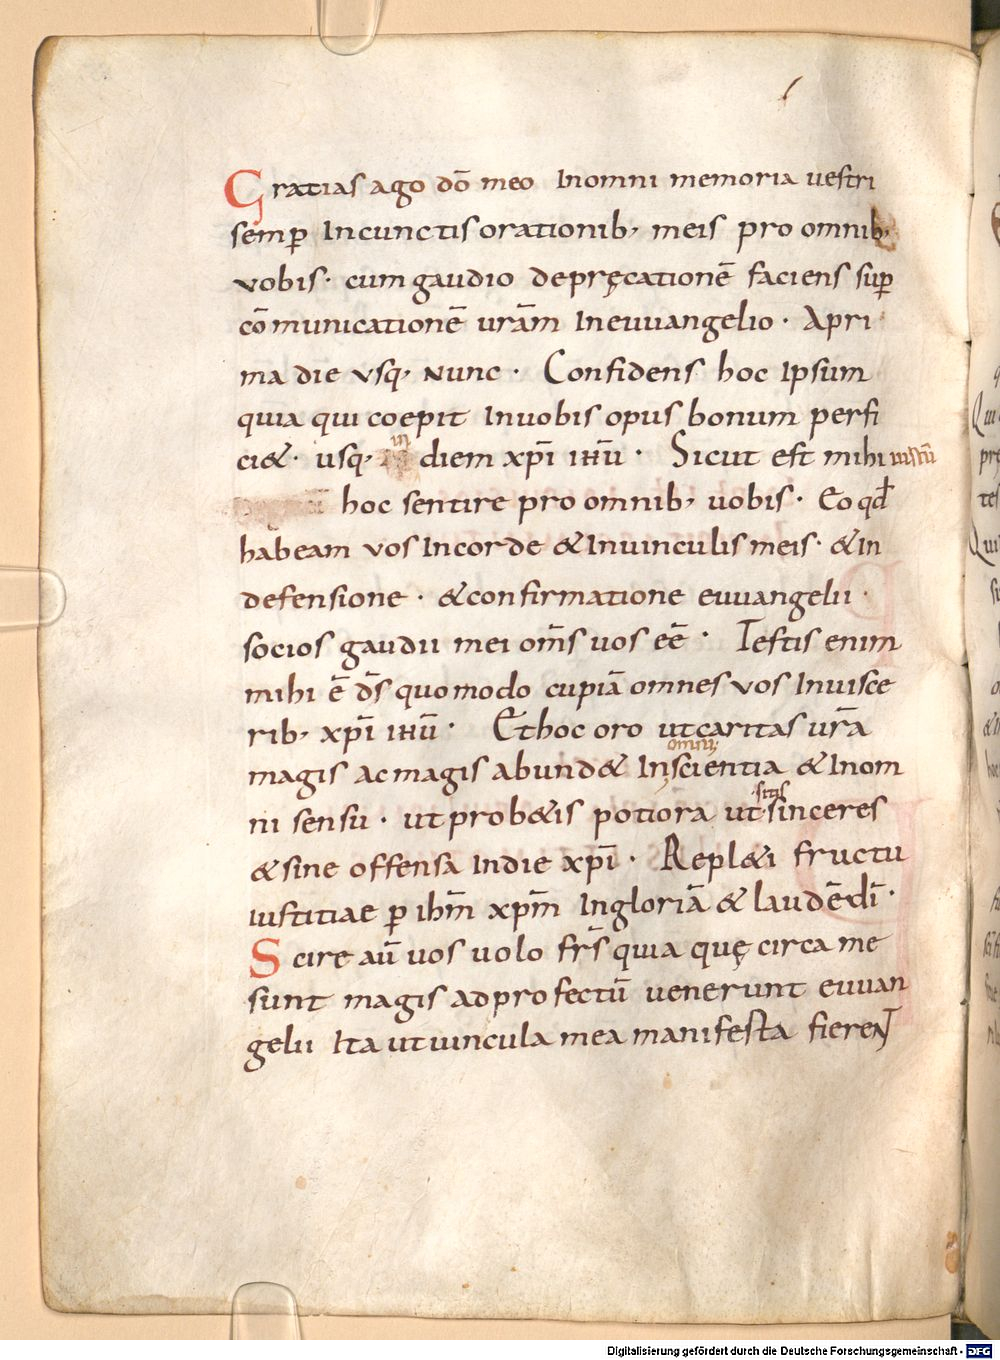 Gratias ago dō meo Inomni memoria uestri
semꝑ Incunctis orationib, meis pro omnib,
vobis· cum gaudio depręcationē faciens suꝑ
cōmunicationē urām Ineuuangelio· Apri
ma die vsq, nunc· Confidens hoc Ipsum
quia qui coepit Inuobis opus bonum perfi
ci&· usq, in diem xp̄i ihū· Sicut est mihi iustū
hoc sentire pro omnib, uobis· Eo qđ
habeam vos Incorde &Inuinculis meis· &In
defensione· &confirmatione euuangelii·
socios gaudii mei om̄s uos eē· Testis enim
mihi ē d̄s quomodo cupiā omnes vos Inuisce
rib, xp̄i ihū· Ethoc oro utcaritas urā
omni
magis acmagis abund& Inscientia &Inom
sitis
ni sensu· utprob&is potiora ut sinceres
&sine offensa Indie xp̄i· Repl&i fructu
iustitiae ꝑ ihm̄ xpm̄ Ingloriā & laudē dī·
Scire aū uos uolo frs̄ quia quę circa me
sunt magis adprofectū uenerunt euuan
gelii Ita utuincula mea manifesta fierent
Qui
Digitalisierung gefördert durch die Deutsche Forschungsgemeinschaft - DFG